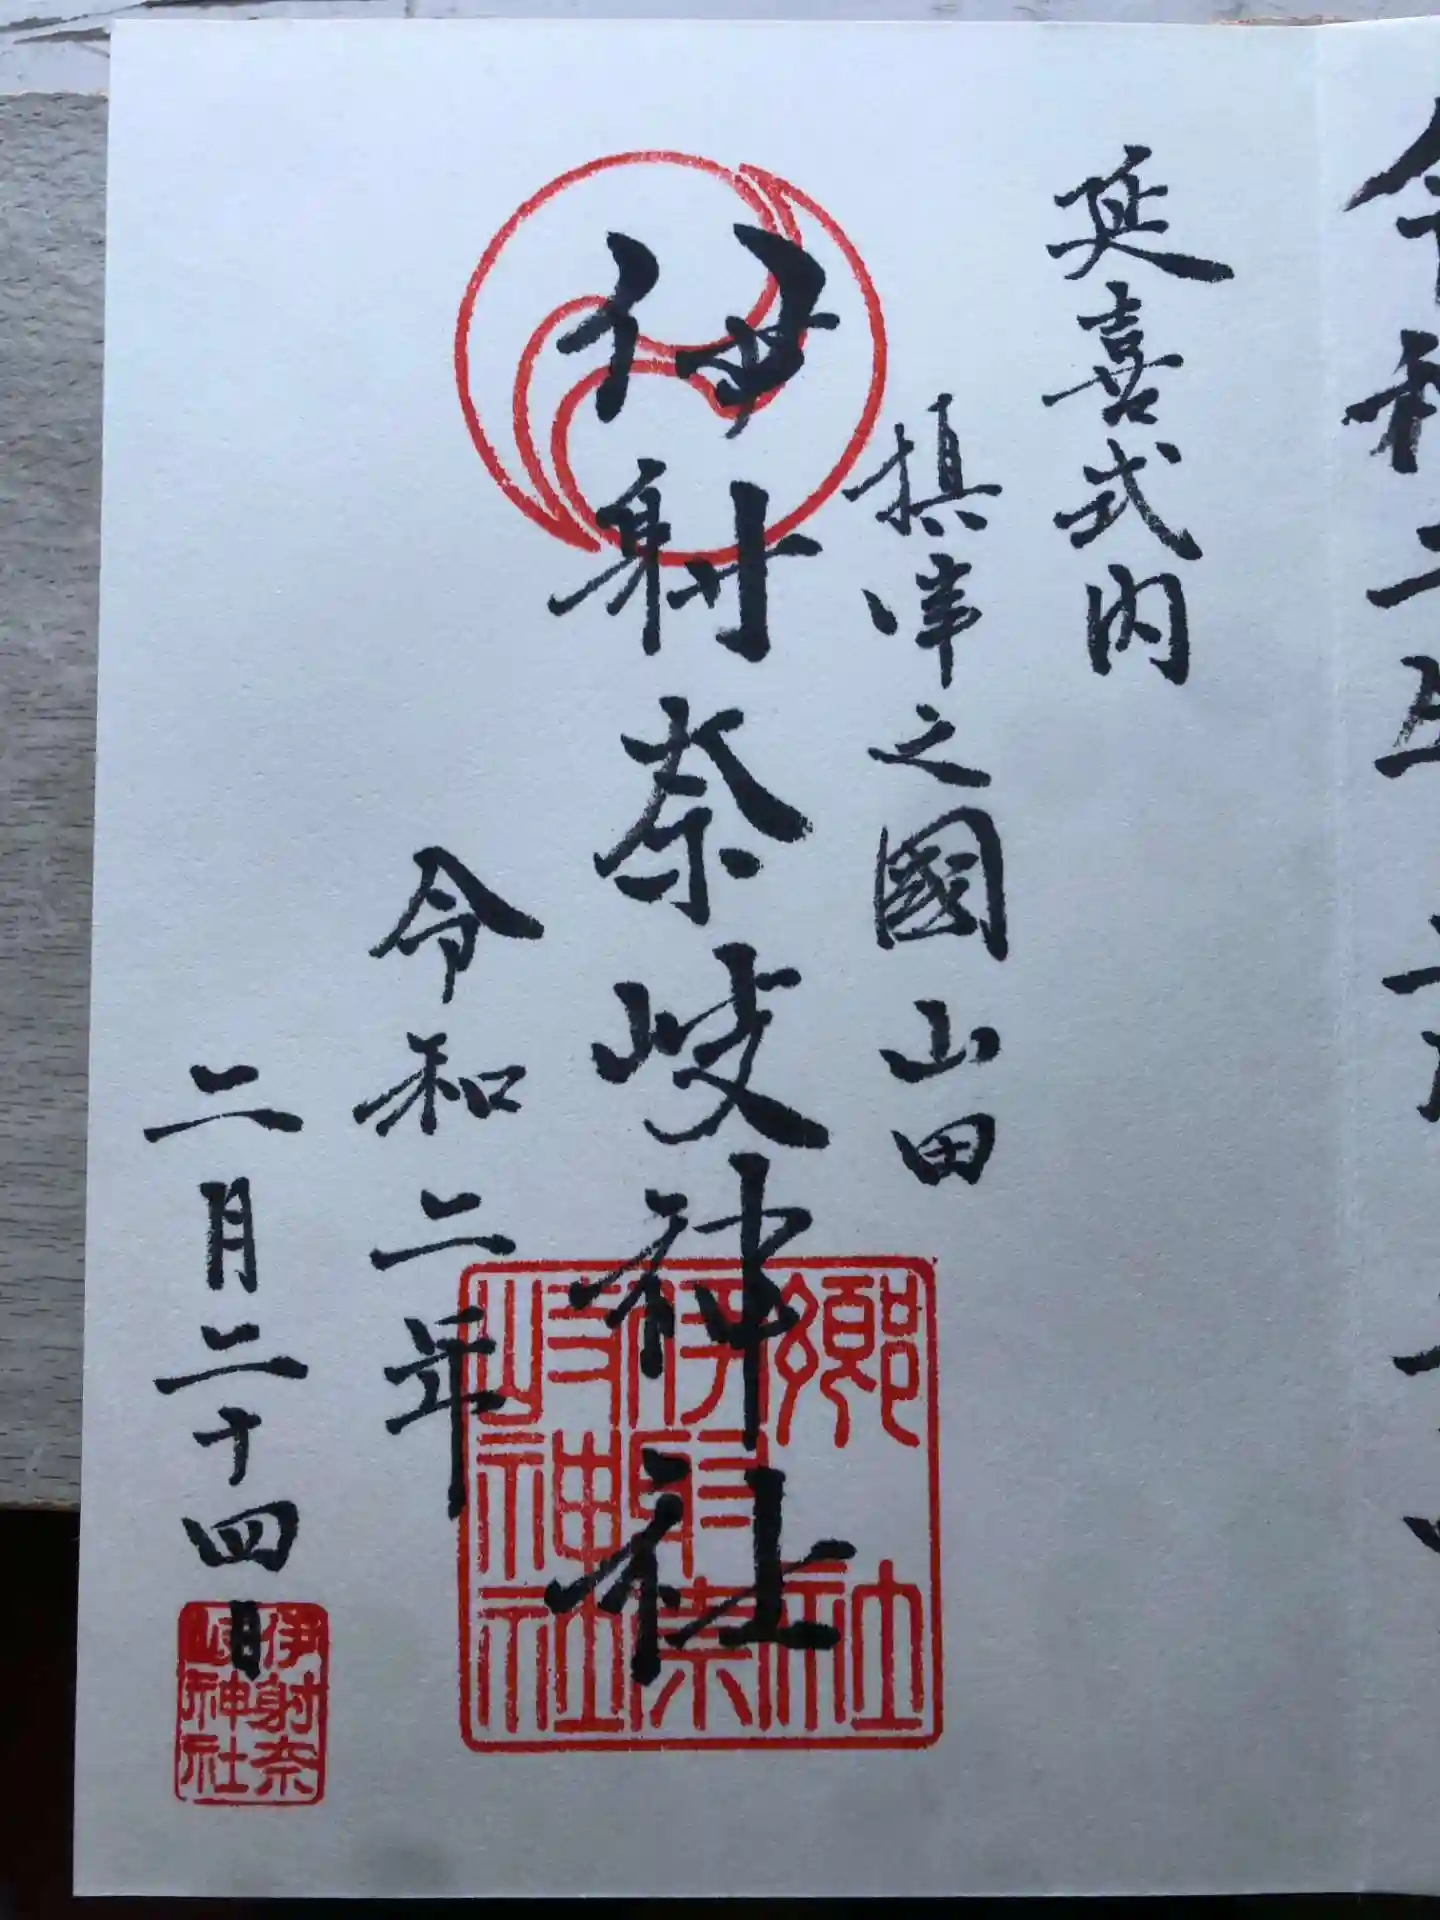 延喜式内
摂津之國山田
伊射奈岐神社
令和二年
二月二十四日
郷社
伊射奈
岐神社
伊射奈
岐神社